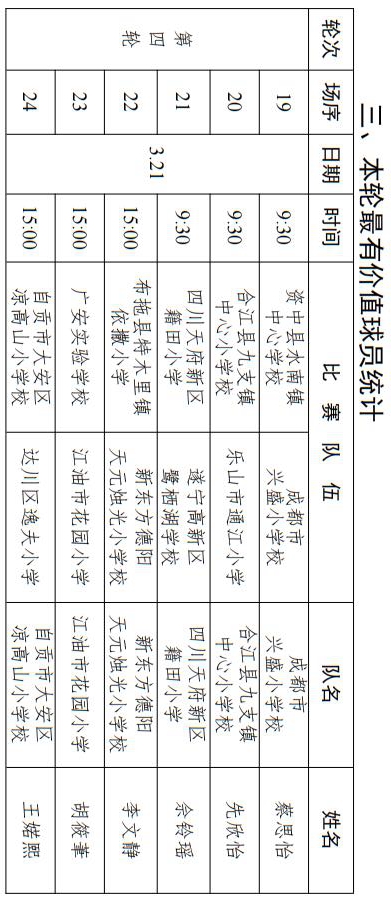 三、本轮最有价值球员统计
轮次 场序 日期 时间 比赛队伍 队名 姓名
第四轮
3.21
19 9:30 资中县水南镇中心学校 成都市兴盛小学校 成都市兴盛小学校 蔡思怡
20 9:30 合江县九支镇中心小学校 乐山市通江小学 合江县九支镇中心小学校 先欣怡
21 9:30 四川天府新区籍田小学 遂宁高新区鹭栖湖学校 四川天府新区籍田小学 佘铃瑶
22 15:00 布拖县特木里镇依撒小学 新东方德阳天元烛光小学校 新东方德阳天元烛光小学校 李文静
23 15:00 广安实验学校 江油市花园小学 江油市花园小学 胡筱葦
24 15:00 自贡市大安区凉高山小学校 达川区逸夫小学 自贡市大安区凉高山小学校 王婼熙